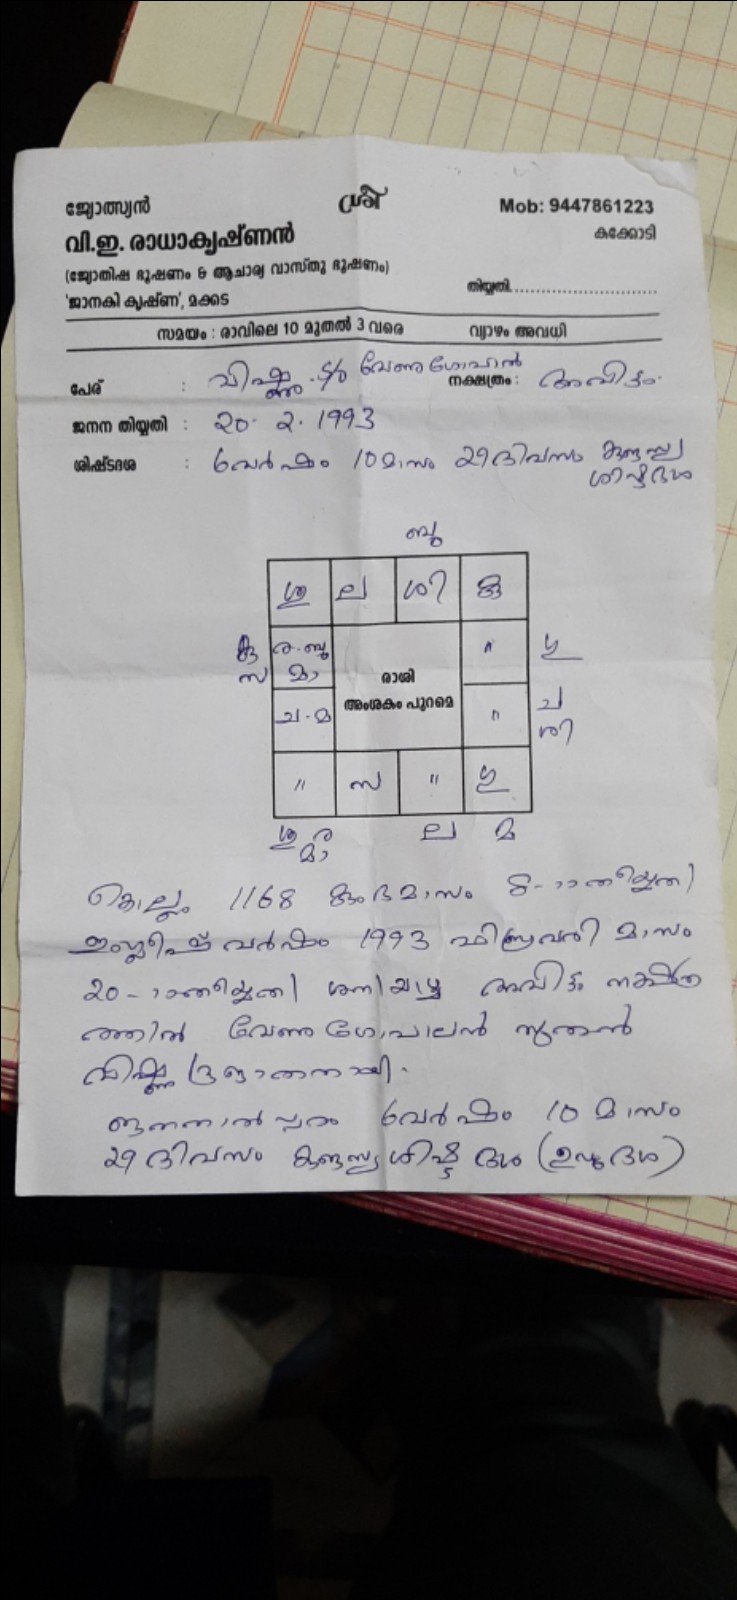 ജ്യോത്സ്യൻ ശ്രീ Mob: 9447861223
വി.ഇ. രാധാകൃഷ്ണൻ കക്കോടി
(ജ്യോതിഷ ഭൂഷണം & ആചാര്യ വാസ്തു ഭൂഷണം)
തിയ്യതി............................
'ജാനകി കൃഷ്ണ', മക്കട
സമയം : രാവിലെ 10 മുതൽ 3 വരെ വ്യാഴം അവധി
പേര് : വിഷ്ണു S/o വേണുഗോപാൽ നക്ഷത്രം : അവിട്ടം
ജനന തിയ്യതി : 20. 2. 1993
ശിഷ്ടദശ : 6 വർഷം 10 മാസം 29 ദിവസം കുജസ്യ
ശിഷ്ടദശ
ബു
ശു ല ശി കു
ഗു സ ര.ബു മാ " ഗു
രാശി
അംശകം പുറമെ
ച.മ " ച ശി
" സ " ഗു
ശു ര മാ ല മ
കൊല്ലം 1168 കുംഭമാസം 8-ാം തിയ്യതി
ഇംഗ്ലീഷ് വർഷം 1993 ഫിബ്രവരി മാസം
20-ാം തിയ്യതി ശനിയാഴ്ച അവിട്ടം നക്ഷത്ര
ത്തിൽ വേണുഗോപാലൻ സുതൻ
വിഷ്ണു പ്രജാതനായി.
ജനനാൽ പരം 6 വർഷം 10 മാസം
29 ദിവസം കുജസ്യ ശിഷ്ട ദശ (ഉഡുദശ)